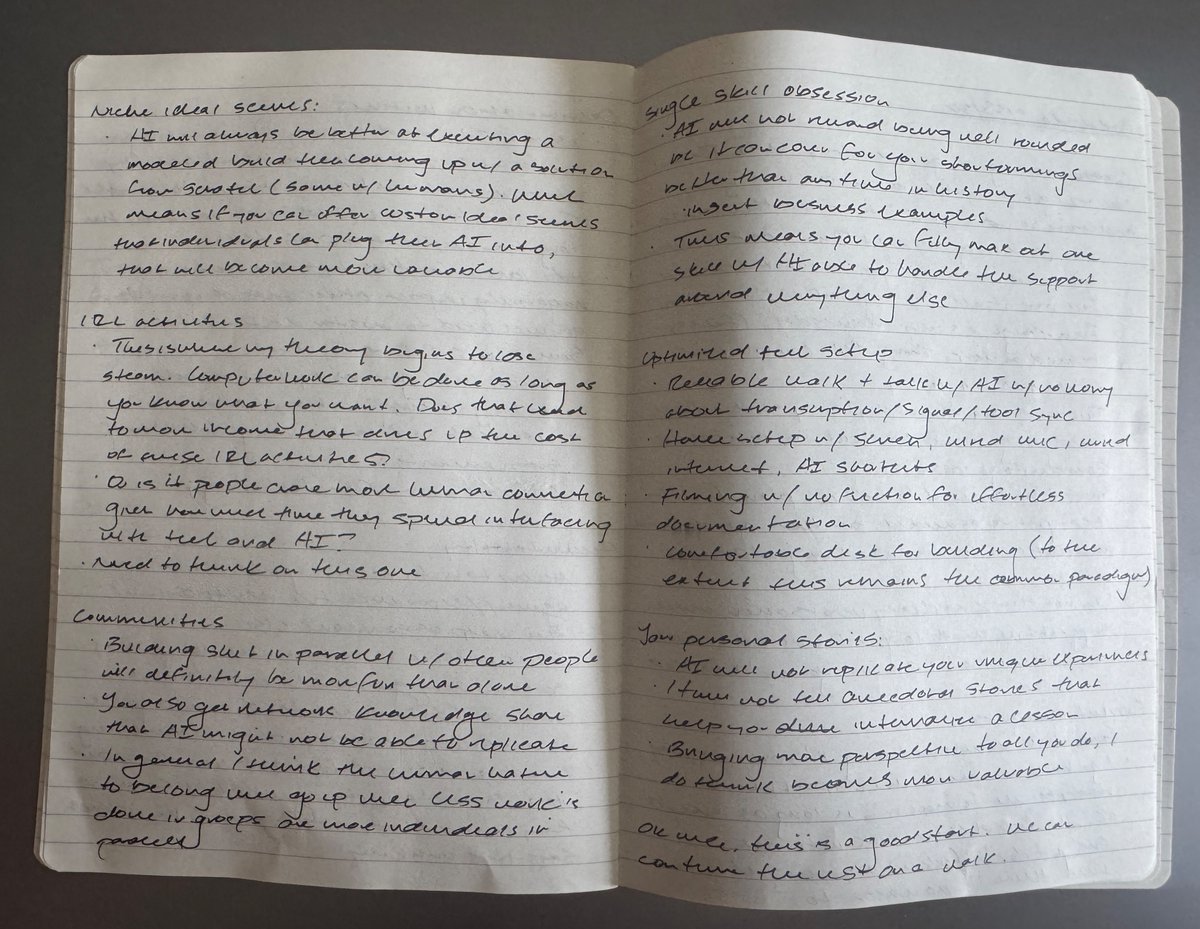 Niche ideal scenes:
· AI will always be better at executing a
modeled build than coming up w/ a solution
from scratch (same w/ humans). Which
means if you can offer custom ideal scenes
that individuals can plug their AI into,
that will become more valuable
IRL activities
· This is where my theory begins to lose
steam. Computer work can be done as long as
you know what you want. Does that lead
to more income that drives up the cost
of these IRL activities?
· Or is it people crave more human connection
given how much time they spend interfacing
with tech and AI?
· Need to think on this one
Communities
· Building shit in parallel w/ other people
will definitely be more fun than alone
· You also get network knowledge share
that AI might not be able to replicate
· In general I think the human nature
to belong will go up when less work is
done in groups and more individuals in
parallel
Single skill obsession
· AI will not reward being well rounded
bc it can cover for your shortcomings
better than any time in history
· insert business examples
· This means you can fully max out one
skill w/ AI able to handle the support
around everything else
Optimized tech setup
· Reliable walk + talk w/ AI w/ no worry
about transcription/signal/tool sync
· Home setup w/ screen, wired mic, wired
internet, AI shortcuts
· Filming w/ no friction for effortless
documentation
· Comfortable desk for building (to the
extent this remains the common paradigm)
Your personal stories:
· AI will not replicate your unique experiences
· It will not tell anecdotal stories that
help you internalize a lesson
· Bringing more perspective to all you do, I
do think becomes more valuable
OK well, this is a good start. We can
continue the rest on a walk.